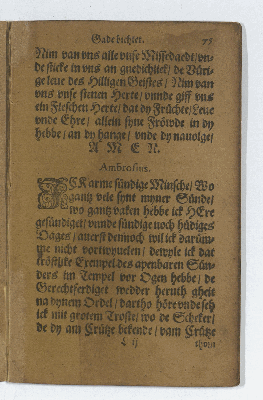 Gadebichier. 75
Nim van vns alle vnse Missedaedt/ vn-
de sticke in vns an gnedichlick/ de Vüri-
ge leue des Hilligen Geistes/ Nim van
vns vnse stenen Herte/ vnnde giff vns
ein Fleschen Herte/ dat dy Früchte/ Leue
vnde Ehre/ allein syne Fröwde in dy
hebbe/ an dy hange/ vnde dy nauolge/
A M E N.
Ambrosius.
ICk arme sündige Minsche/ Wo
gantz vele synt myner Sünde/
wo gantz vaken hebbe ick HEre
gesündiget/ vnnde sündige noch hüdiges
Dages/ auerst dennoch wil ick darüm-
me nicht vortwyuelen/ dewyle ick dat
kröstlike Exempel des apenbaren Sün-
ders im Tempel vor Ogen hebbe/ de
Gerechtferdiget wedder heruth gheit
na dynem Ordel/ dartho höre vnde seh
ick mit grotem Troste/ wo de Scheker/
de dy am Crütze bekende/ vam Crütze
ij thom